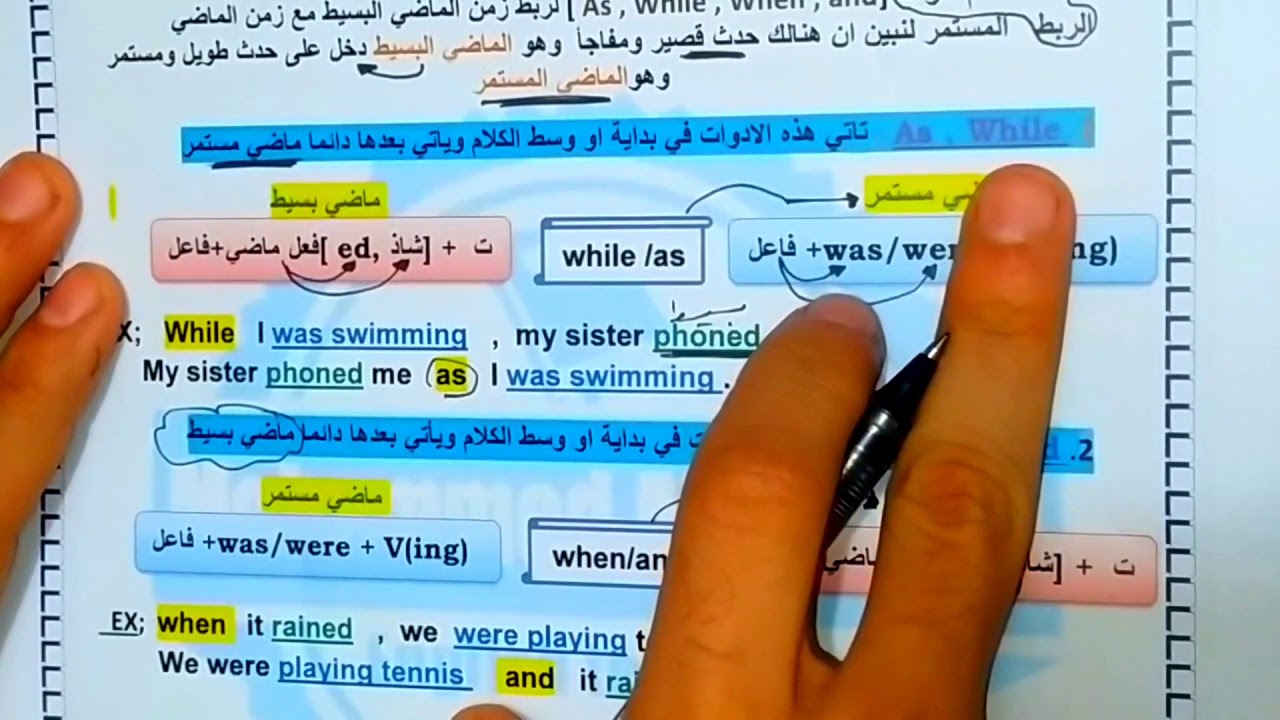 لربط زمن الماضي البسيط مع زمن الماضي [As , While , When , and]
الربط المستمر لنبين ان هنالك حدث قصير ومفاجأ وهو الماضي البسيط دخل على حدث طويل ومستمر
وهو الماضي المستمر
As , While تاتي هذه الادوات في بداية او وسط الكلام وياتي بعدها دائما ماضي مستمر
ماضي بسيط
ت + [شاذ ,ed ]فعل ماضي+فاعل
while /as
فاعل +was/ ing)
X; While I was swimming , my sister phoned
My sister phoned me as I was swimming .
2. في بداية او وسط الكلام ويأتي بعدها دائما ماضي بسيط
ماضي مستمر
فاعل +was/were + V(ing)
ت +
EX; when it rained , we were playing
We were playing tennis and it